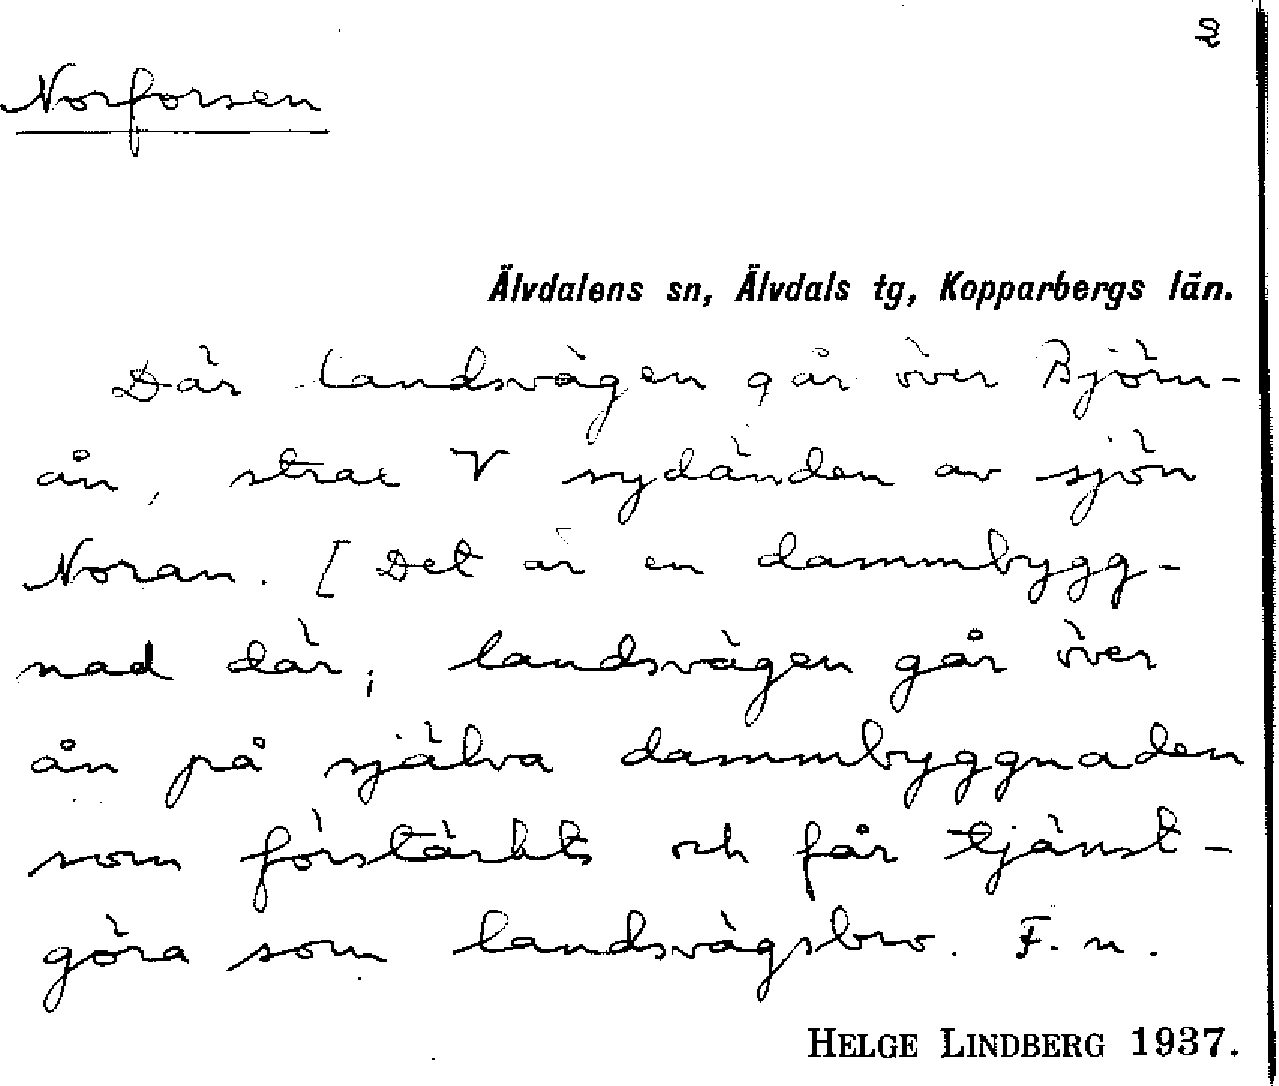 2
Norforsen
Älvdalens sn, Älvdals tg, Kopparbergs län.
Där landsvägen går över Björn-
ån, strax V sydänden av sjön
Noran. [ Det är en dammbygg-
nad där; landsvägen går över
ån på själva dammbyggnaden
som förstärkts och får tjänst-
göra som landsvägsbro. F. n.
HELGE LINDBERG 1937.